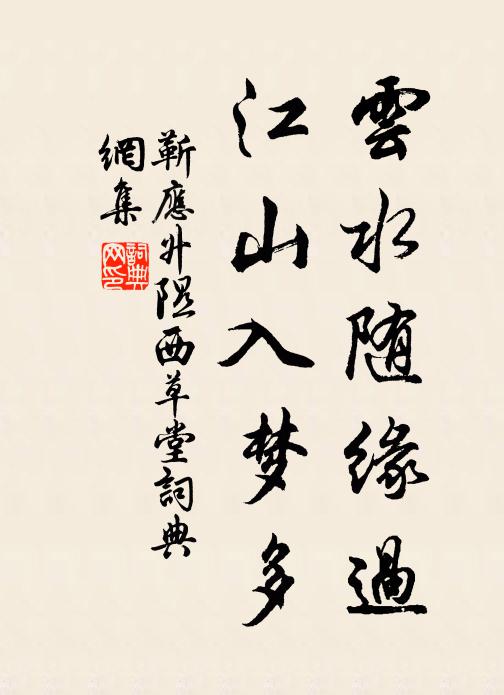 雲水随缘過
江山入梦多
靳應升隰西草堂詞典
網集
詞典
网印